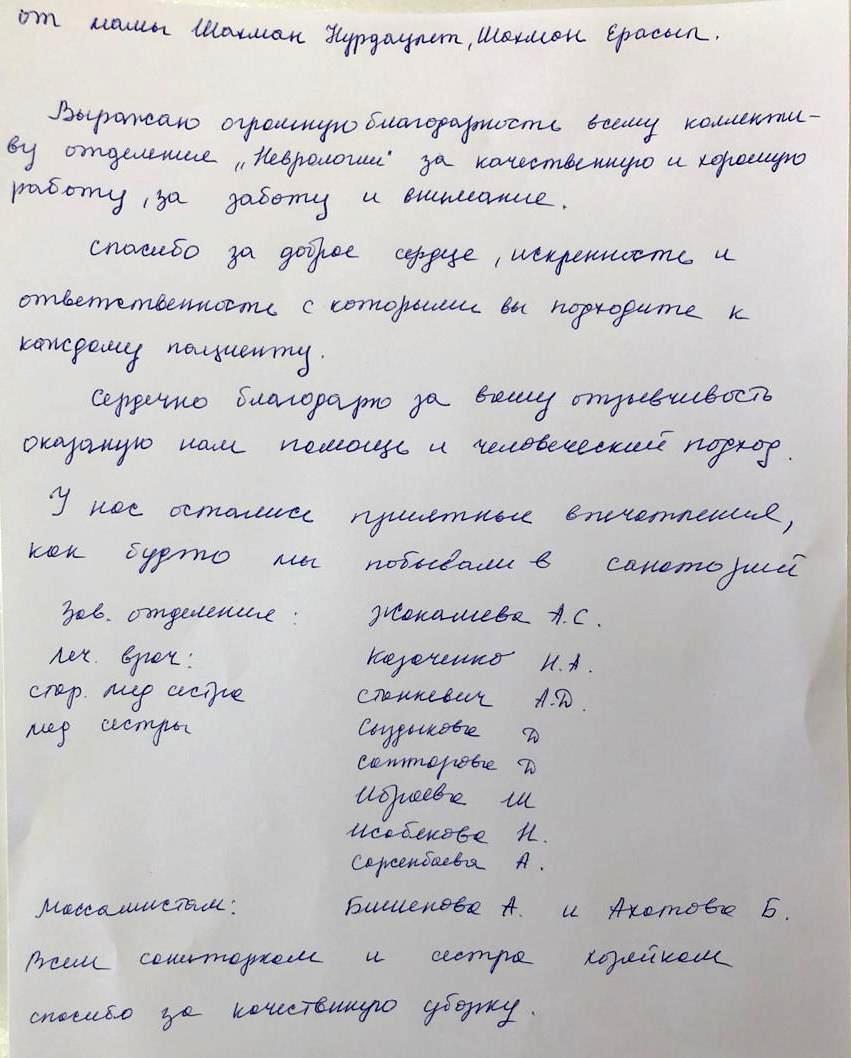 от мамы Шахман Нурдаулет, Шахман Ерасыл.
Выражаю огромную благодарность всему коллекти-
ву отделение „Неврологии" за качественную и хорошую
работу, за заботу и внимание.
спасибо за доброе сердце, искренность и
ответственность с которыми вы подходите к
каждому пациенту.
Сердечно благодарю за вашу отзывчивость
оказаную нам помощь и человеческий подход.
У нас остались приятные впечатления,
как будто мы побывали в санаторий
Зав. отделение: Жакалиева А.С.
Леч. врач: Казаченко Н.А.
стар. мед сестра Станкевич А.Д.
мед сестры Сыздыкова Д
Саттарова Д
Ибраева Ш
Исабекова Н.
Сарсенбаева А.
Массамистам: Бишенова А. и Ахатова Б.
Всем санитаркам и сестра хозяйкам
спасибо за качественную уборку.